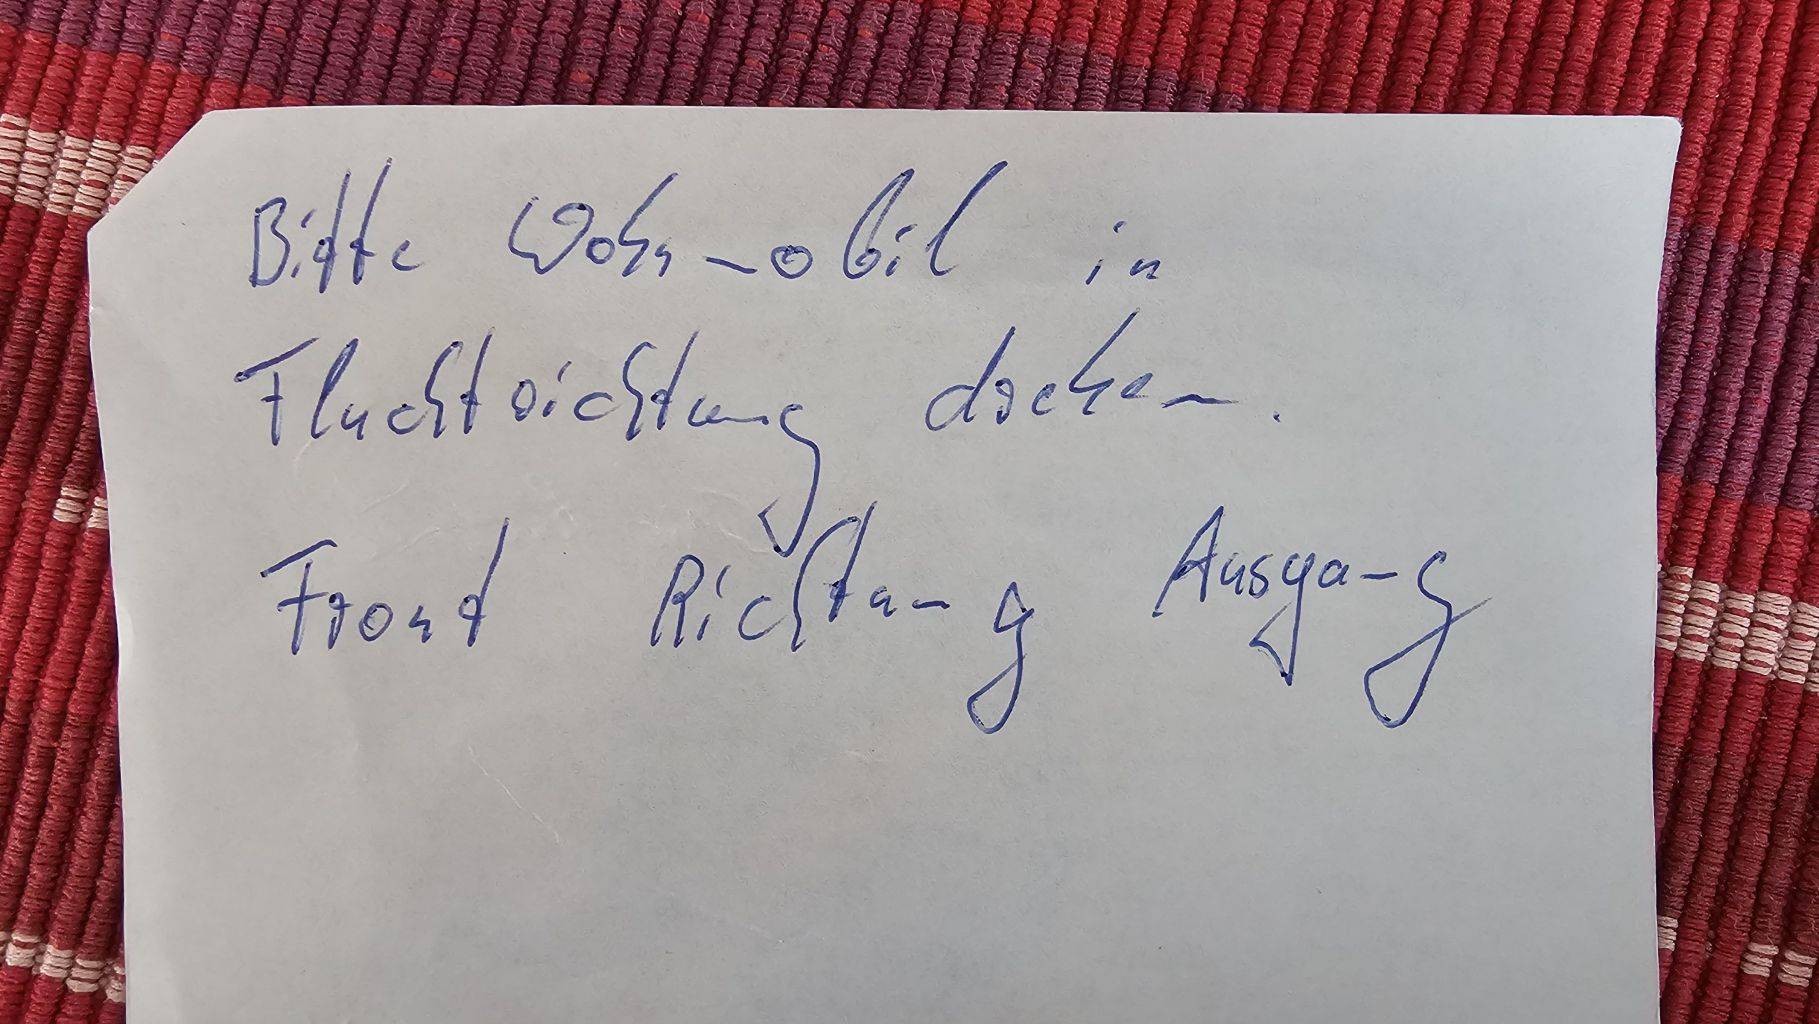 Bitte Wohnmobil in
Fluchtrichtung drehen.
Front Richtung Ausgang